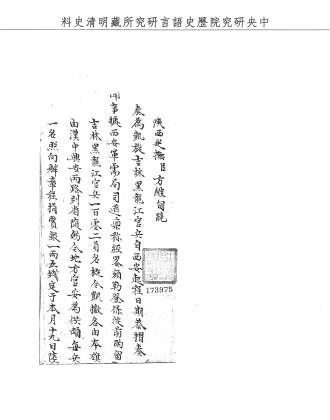 中央研究院歷史語言研究所藏明清史料
陝西巡撫臣方維甸跪
奏為凱旋吉林黑龍江官兵自西安起程日期恭摺奏
聞事據西安軍需局司道稟稱經畧額勒登保從前酌留
吉林黑龍江官兵一百零二員名檄令凱撤各由本旗
由漢中興安兩路到省隨飭令地方官妥為供頓每兵
一名照向辦章程捐賞銀一兩五錢定于本月十九日陸
173975